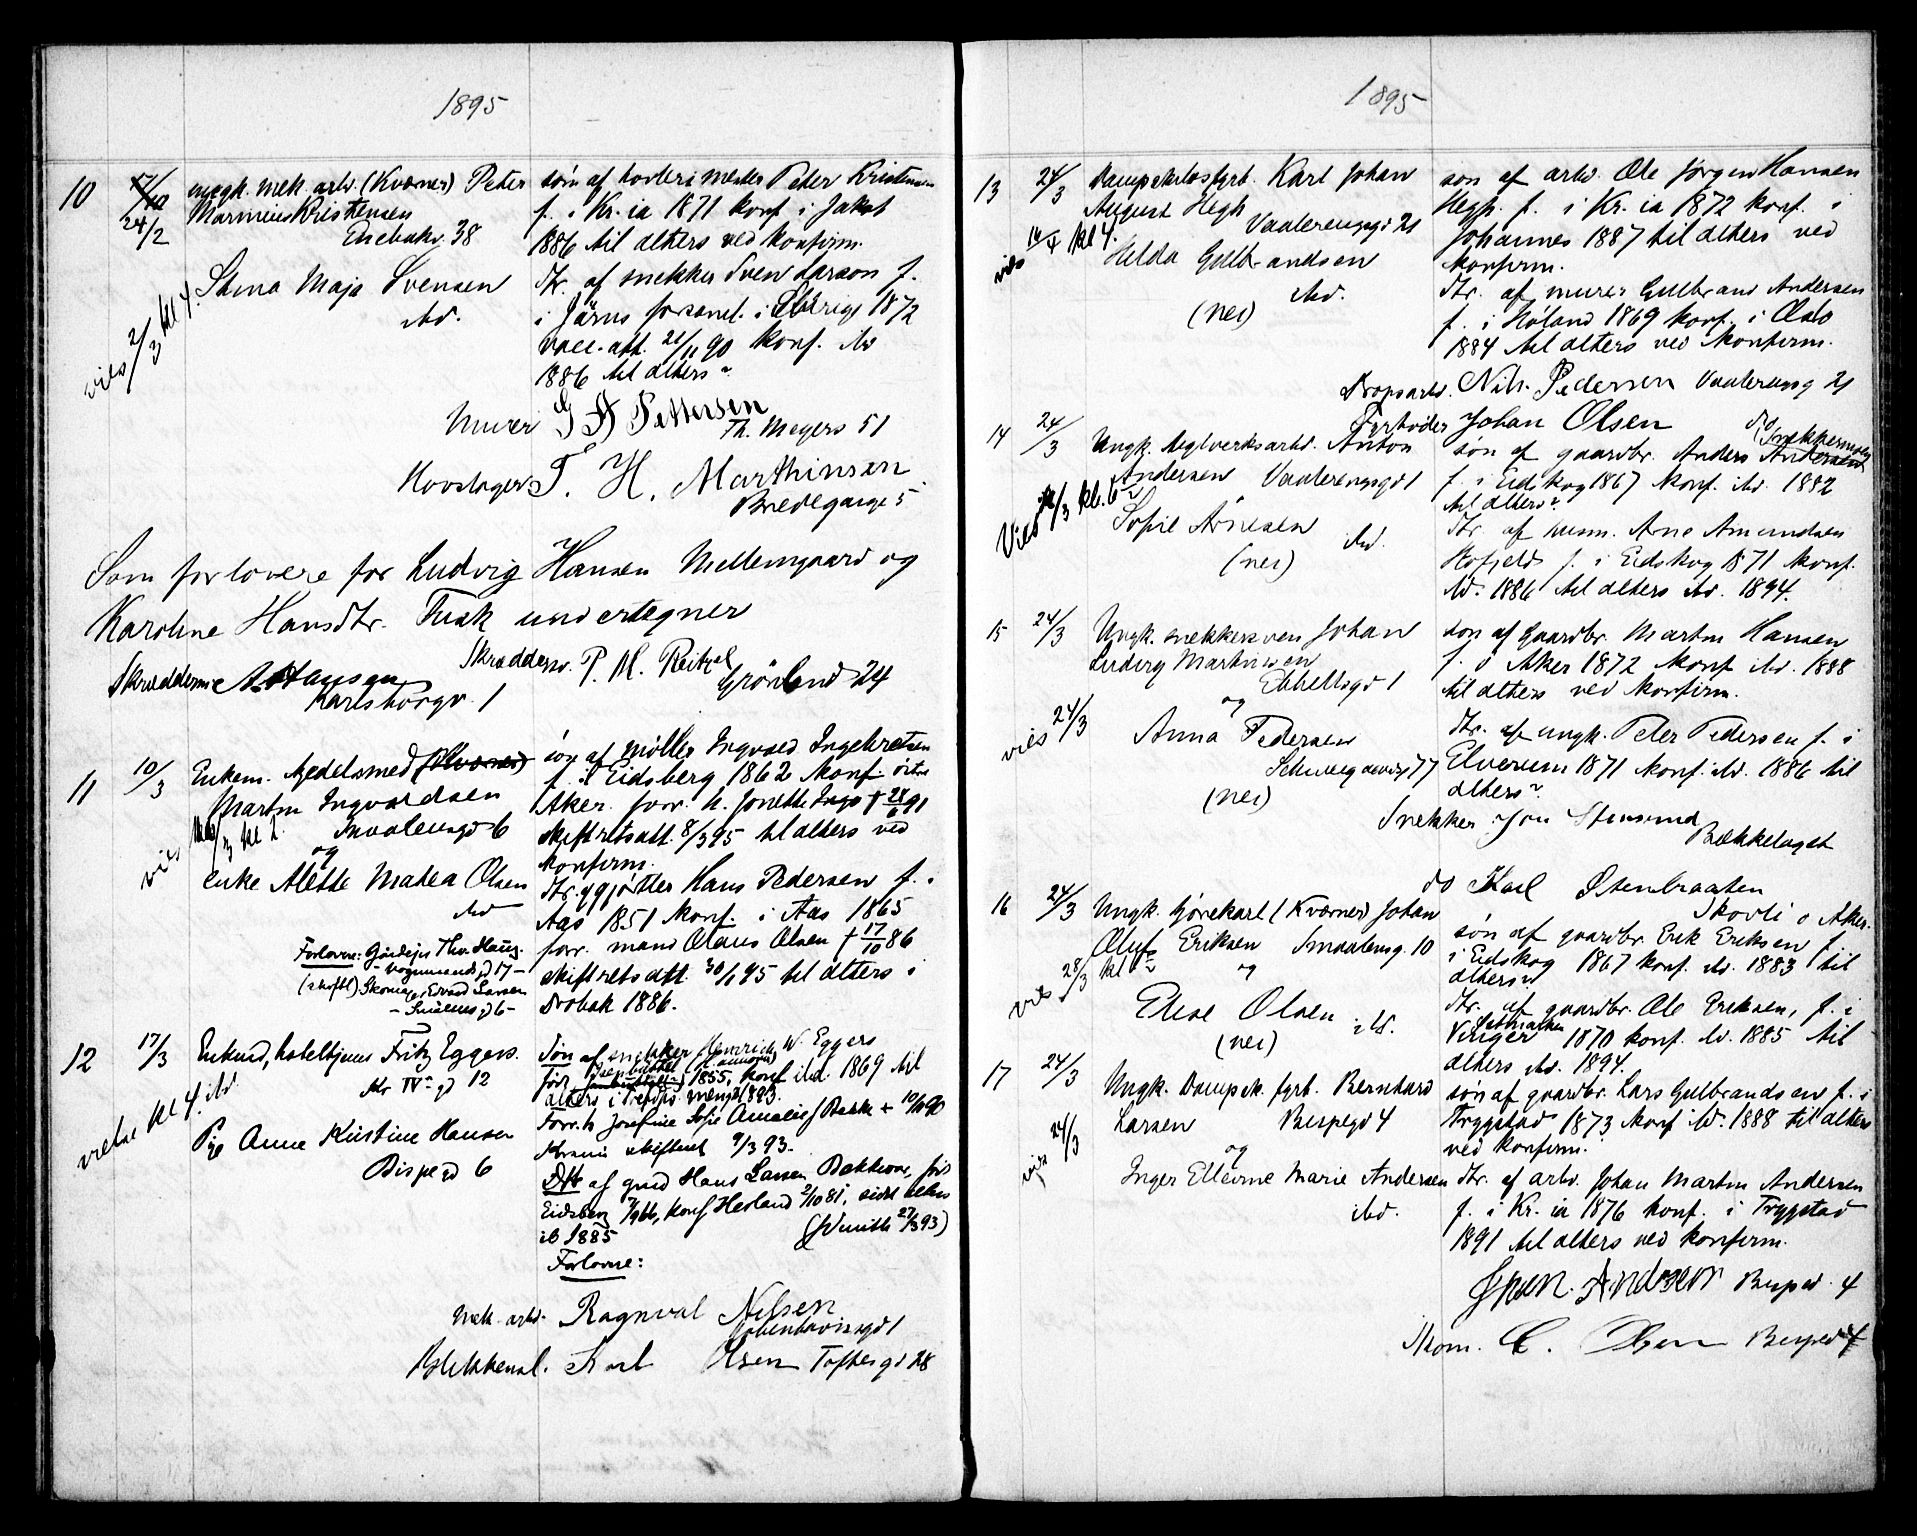 1895
10 17/12 ungk. mek. arb. (Kværner) Peter
24/2 Marinius Kristensen
Enebakv. 38
søn af Peter Kristensen
f. i Kr.ia 1871 konf. i Jakob
1886 til alters ved konfirm.
vies 2/3 kl 4.
Stina Maja Svensen
ibd.
dtr. af snekker Sven Larson f.
i Järns forsaml. i Sverige 1872
vacc. att. 21/11 90 konf. ibd
1886 til alters
Murer G A Pettersen
Th. Meyers 51
Hovslager T. H. Marthinsen
Bredegange 5
Som forlovere for Ludvig Hansen Mellemgaard og
Karoline Hansdtr. Fusk undertegner
Skræddermr A. Hansen
Karlsborgv. 1
Skræddersv. P. M. Reitzel
Grönland 24
11 10/3 Enkem. Ajedelsmed (Kværner)
Martin Ingvardsen
Smaalensgd 6
og
enke Alette Matea Olsen
ibd
vies kl 2.
søn af Møller Ingvard Ingebretsen
f. i Eidsberg 1862 konf. östre
Aker. forr. h. Jonette Ingv † 28/6 91
skiftretsatt. 8/3 95 til alters ved
konfirm.
dtr. af Hans Pedersen f. i
Aas 1851 konf. i Aas 1865
forr. mand Olaus Olsen † 17/10 86
skiftretsatt. 30/1 95 til alters i
Drøbak 1886.
Forlovere: Gårdejer Thv. Haug
- Vognmandsgd 17 -
(skriftl) Skomager Edvard Larsen
- Smålensgd 6 -
12 17/3 Enkmd, hotelltjener Fritz Eggers.
Chr IVs gd 12
Pige Anne Kristine Hansen
Bispegd 6
vielse kl 4. ibd
Søn af snekker Heinrich W. Eggers
født 1855, konf ibd. 1869 til
alters i Trefold. menigh 1893.
Forr. h Josefine Sofie Amalie f Bakke + 10/11 90
Kr.ania skifteret 9/3 93.
Dtr af gmd Hans Larsen Bakkerne, født
Eidsberg 7/9 66, konf Herland 2/10 81, sidst alters
ib 1885
Forlovere:
Mek. arb. Ragnval Nilsen
Kobenhavnsgd 1
Blikkensl. Karl Olsen Toftesgd. 28
1895
13 24/3 Dampskibsfyrb. Karl Johan
August Hegh
Vaalerengsgd 21
vies 16/4 kl 4.
Hilda Gulbrandsen
ibd.
(nei)
søn af arb. Ole Jørgen Hansen
Hegh. f. i Kr.ia 1872 konf. i
Johannes 1887 til alters ved
konfirm.
dtr. af murer Gulbrand Andersen
f. i Høland 1869 konf. i Oslo
1884 til alters ved konfirm.
Dropsarb. Nils Pedersen Vaalerengg 21
Fyrbøder Johan Olsen do
14 24/3 Ungk. teglverksarb. Anton
Andersen Vaalerengsgd 1
Sofie Arnesen ibd.
(nei)
søn af gaardbr. Anders Andersen
f. i Eidskog 1867 konf. ibd. 1882
til alters
dtr. af husm. Arne Amundsen
f. i Eidskog 1871 konf.
ibd. 1886 til alters ibd. 1894.
15 24/3 Ungk. snekkersven Johan
Ludvig Martinsen
Ebbellsgd 1
og
vies 24/3
Anna Pedersen
Schweigaardsgd 77
(nei)
søn af Gaardbr. Martin Hansen
f. ö Aker 1872 konf ibd. 1888
til alters ved konfirm.
dtr. af ungk. Peter Pedersen f. i
Elverum 1871 konf. ibd. 1886 til
alters
Snekker Jon Stensrud
Bækkelaget
do Karl Stenbraaten
Skovli ö Aker.
16 24/3 Ungk. kjørekarl (Kværner) Johan
Oluf Eriksen Smaalensg. 10
og
vies 28/3
Elise Olsen ib.
(nei)
søn af gaardbr. Erik Eriksen f.
i Eidskog 1867 konf. ibd. 1883 til
alters
dtr. af gaardbr. Ole Eriksen, f. i
Vinger 1870 konf. ibd. 1885 til
alters ibd. 1894.
17 24/3 Ungk. Dampsk. fyrb. Bernhard
Larsen Bispegd 4
og
vies 24/3
Inger Ellevine Marie Andersen
ibd.
søn af gaardbr. Lars Gulbrandsen f. i
Trygstad 1873 konf ibd. 1888 til alters
ved konfirm.
dtr. af arb. Johan Martin Andersen
f. i Kr.ia 1876 konf. i Trygstad
1891 til alters ved konfirm.
Andersen Bispegd. 4
Skom. C. Olsen Bispegd 4